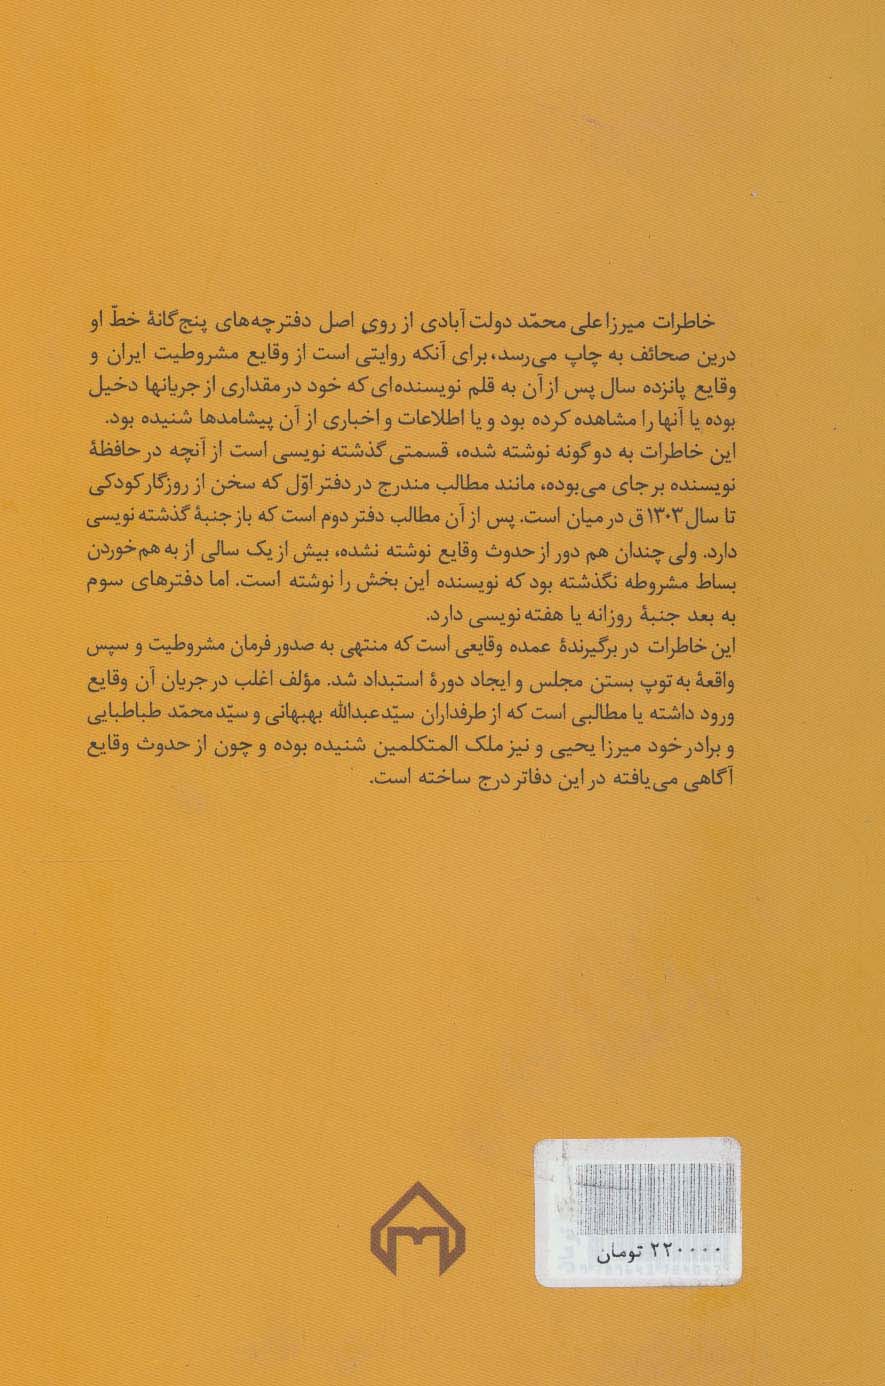 خاطرات میرزا علی محمّد دولت آبادی از روی اصل دفترچه‌های پنج گانهٔ خطّ او
درین صحائف به چاپ می‌رسد، برای آنکه روایتی است از وقایع مشروطیت ایران و
وقایع پانزده سال پس از آن به قلم نویسنده‌ای که خود در مقداری از جریانها دخیل
بوده یا آنها را مشاهده کرده بود و یا اطلاعات و اخباری از آن پیشامدها شنیده بود.
این خاطرات به دو گونه نوشته شده، قسمتی گذشته نویسی است از آنچه در حافظهٔ
نویسنده برجای می‌بوده، مانند مطالب مندرج در دفتر اوّل که سخن از روزگار کودکی
تا سال ۱۳۰۳ ق در میان است. پس از آن مطالب دفتر دوم است که باز جنبهٔ گذشته نویسی
دارد. ولی چندان هم دور از حدوث وقایع نوشته نشده، بیش از یک سالی از به هم خوردن
بساط مشروطه نگذشته بود که نویسنده این بخش را نوشته است. اما دفترهای سوم
به بعد جنبهٔ روزانه یا هفته نویسی دارد.
این خاطرات در برگیرندهٔ عمده وقایعی است که منتهی به صدور فرمان مشروطیت و سپس
واقعهٔ به توپ بستن مجلس و ایجاد دورهٔ استبداد شد. مؤلف اغلب در جریان آن وقایع
ورود داشته یا مطالبی است که از طرفداران سیّد عبدالله بهبهانی و سیّد محمّد طباطبایی
و برادر خود میرزا یحیی و نیز ملک المتکلمین شنیده بوده و چون از حدوث وقایع
آگاهی می‌یافته در این دفاتر درج ساخته است.
۲۲۰۰۰۰ تومان